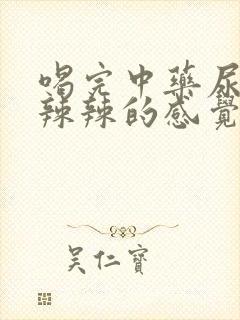 喝完中藥尿
辣辣的感覺
吳仁寶